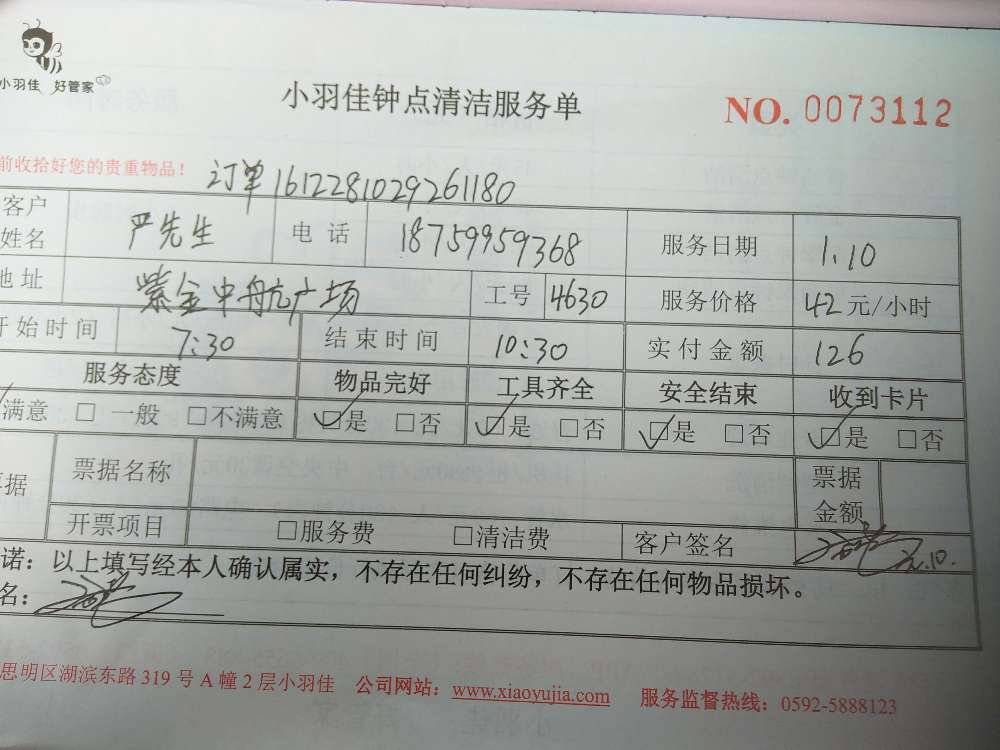 小羽佳 好管家
小羽佳钟点清洁服务单
NO. 0073112
前收拾好您的贵重物品！
订单1612281029261180
客户姓名 严先生 电话 18759959368 服务日期 1.10
地址 紫金中航广场 工号 4630 服务价格 42元/小时
开始时间 7:30 结束时间 10:30 实付金额 126
服务态度 物品完好 工具齐全 安全结束 收到卡片
满意 □一般 □不满意 ☑是 □否 ☑是 □否 ☑是 □否 ☑是 □否
据 票据名称 票据金额
开票项目 □服务费 □清洁费 客户签名 1.10.
诺：以上填写经本人确认属实，不存在任何纠纷，不存在任何物品损坏。
名：
思明区湖滨东路319号A幢2层小羽佳 公司网站：www.xiaoyujia.com 服务监督热线：0592-5888123